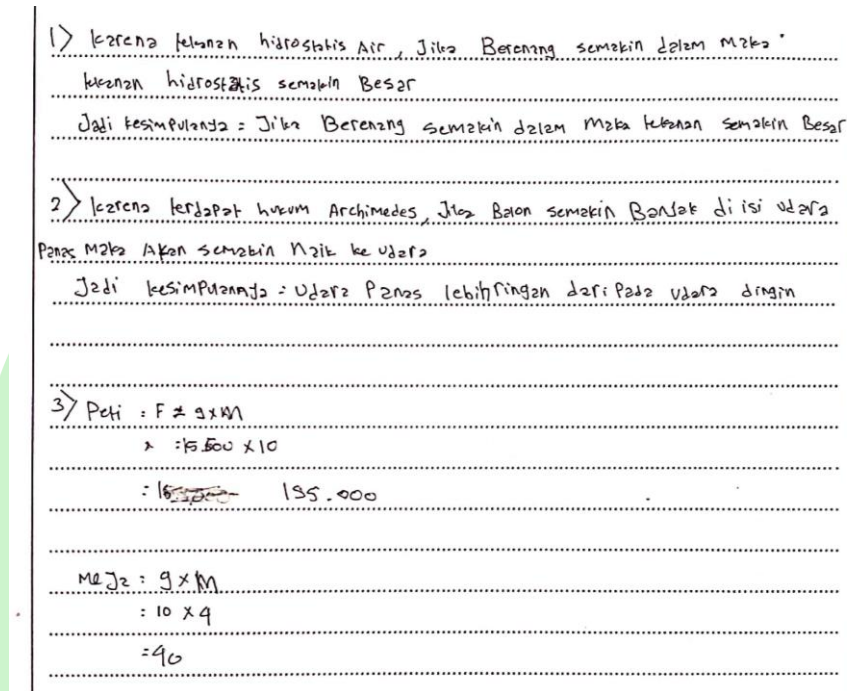 1) Karena tekanan hidrostatis Air, Jika Berenang semakin dalam Maka
tekanan hidrostatis semakin Besar
Jadi kesimpulanya = Jika Berenang semakin dalam Maka tekanan semakin Besar
2) Karena terdapat hukum Archimedes, Jika Balon semakin Banyak di isi udara
Panas Maka Akan semakin Naik ke udara
Jadi kesimpulannya : Udara Panas lebih ringan dari pada udara dingin
3) Peti : F = g x M
: 15.500 x 10
: 155.000
Meja : g x M
: 10 x 4
= 40